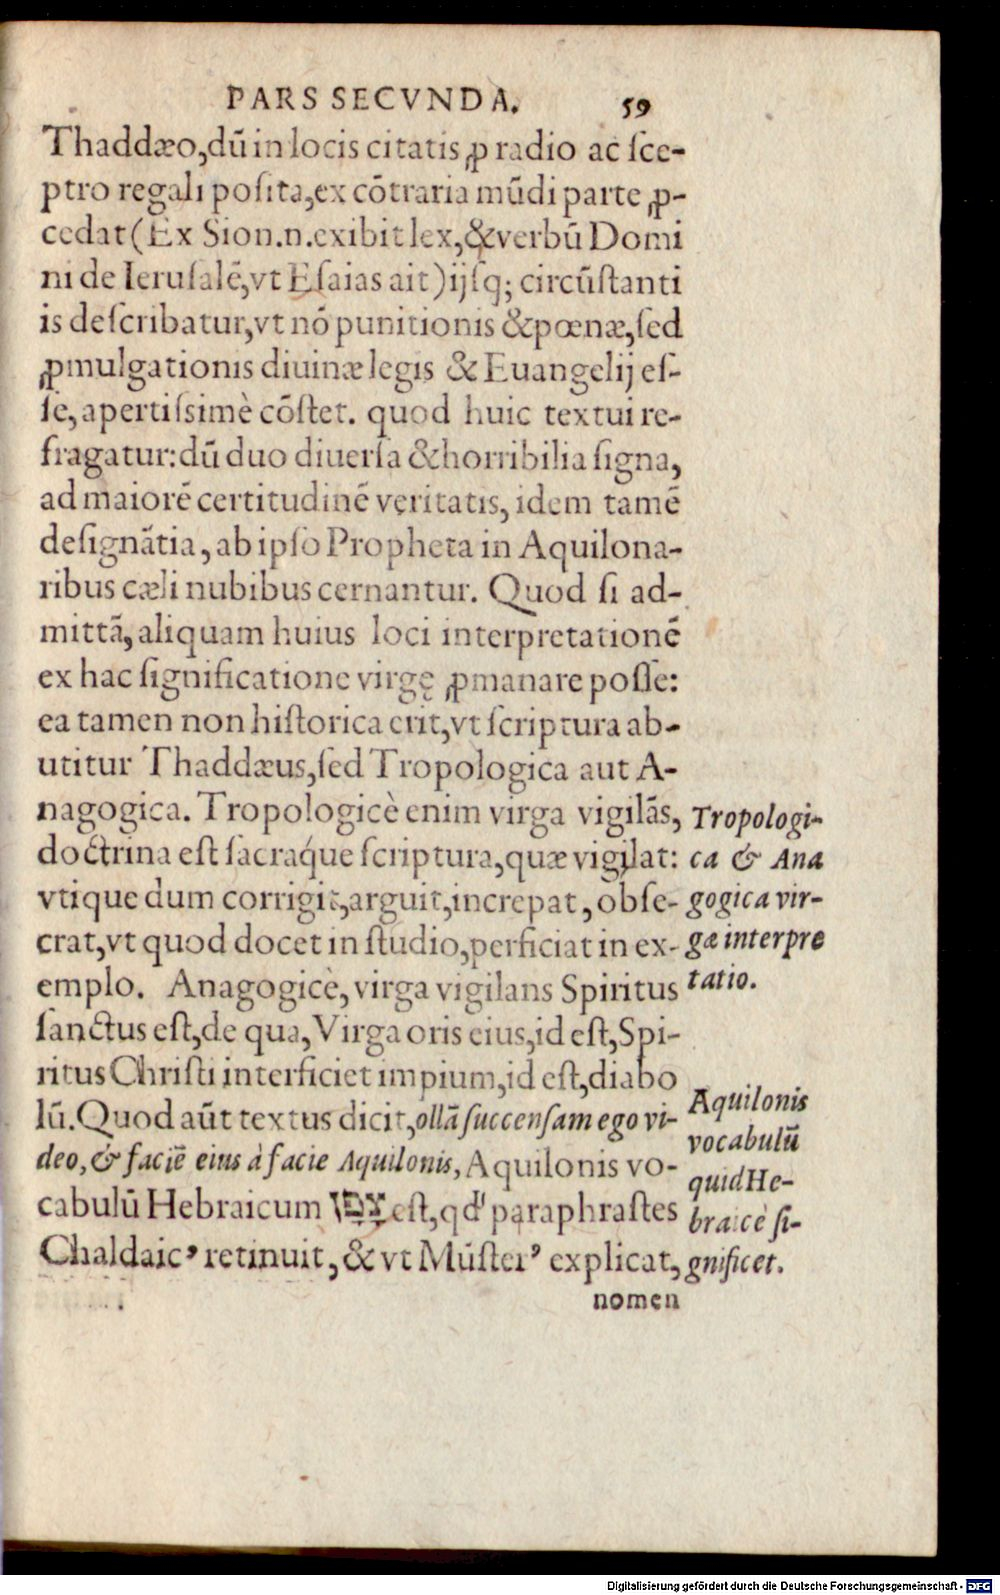 PARS SECVNDA. 59
Thaddæo,dũ in locis citatis ꝓ radio ac ſce-
ptro regali poſita,ex cõtraria mũdi parte ꝓ-
cedat (Ex Sion.n.exibit lex,&verbũ Domi
ni de Ieruſalẽ,vt Eſaias ait)ijſq; circũſtanti
is deſcribatur,vt nõ punitionis &pœnæ,ſed
ꝓmulgationis diuinæ legis & Euangelij eſ-
ſe,apertiſsimè cõſtet. quod huic textui re-
fragatur:dũ duo diuerſa &horribilia ſigna,
ad maiorẽ certitudinẽ veritatis, idem tamẽ
deſignãtia,ab ipſo Propheta in Aquilona-
ribus cæli nubibus cernantur. Quod ſi ad-
mittã,aliquam huius loci interpretationẽ
ex hac ſignificatione virgę ꝓmanare poſſe:
ea tamen non hiſtorica erit,vt ſcriptura ab-
utitur Thaddæus,ſed Tropologica aut A-
nagogica. Tropologicè enim virga vigilãs,
doctrina eſt ſacraq́ue ſcriptura,quæ vigilat:
vtique dum corrigit,arguit,increpat,obſe-
crat,vt quod docet in ſtudio,perficiat in ex-
emplo. Anagogicè,virga vigilans Spiritus
ſanctus eſt,de qua,Virga oris eius,id eſt,Spi-
ritus Chriſti interficiet impium,id eſt,diabo
lũ.Quod aũt textus dicit,ollã ſuccenſam ego vi-
deo,& faciẽ eius à facie Aquilonis,Aquilonis vo-
cabulũ Hebraicum צָפֹן eſt,qd' paraphraſtes
Chaldaic⁹ retinuit,& vt Mũſter⁹ explicat,
nomen
Tropologi-
ca & Ana
gogica vir-
gæ interpre
tatio.
Aquilonis
vocabulũ
quid He-
braicè ſi-
gnificet.
Digitalisierung gefördert durch die Deutsche Forschungsgemeinschaft - DFG